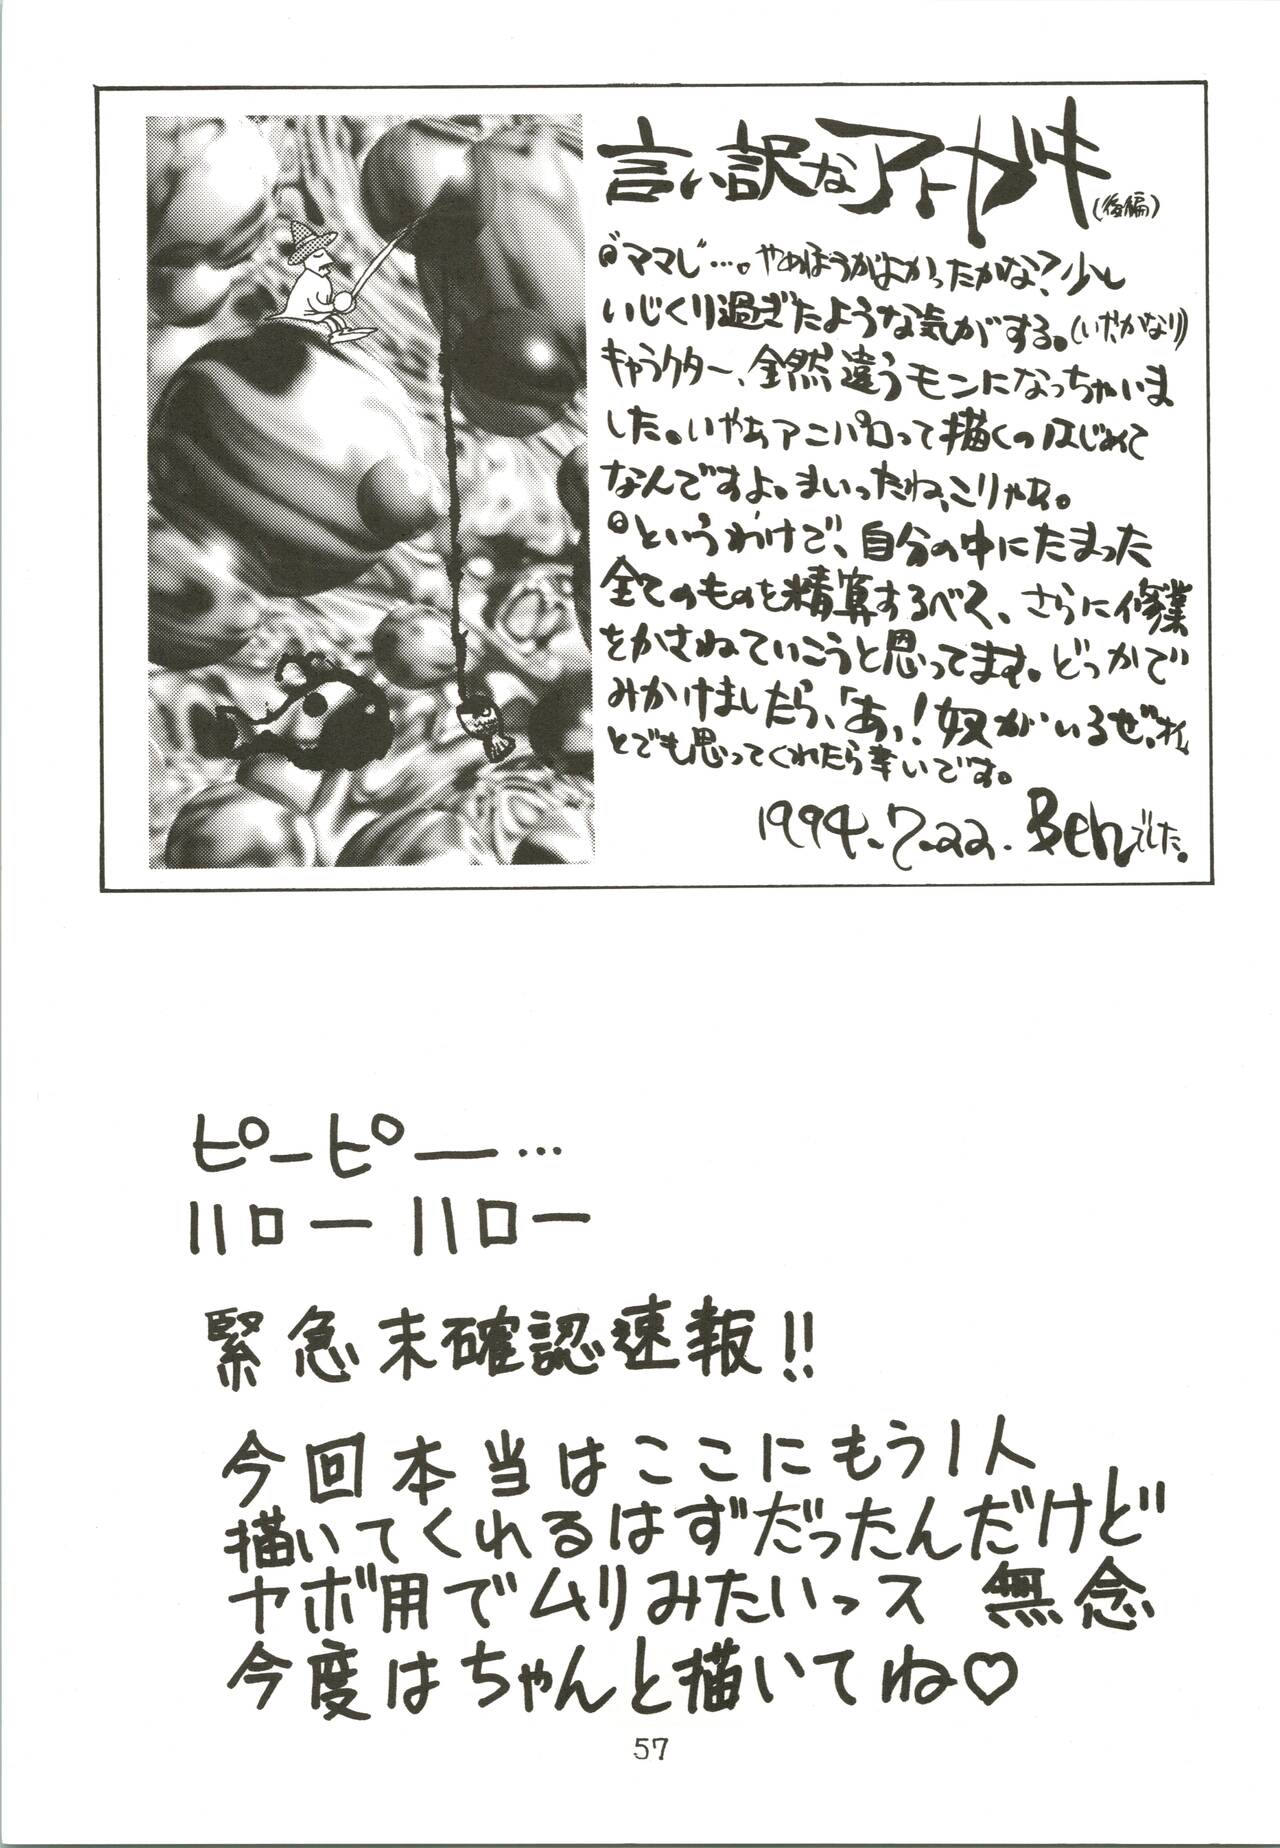 言い訳なアトガキ(後編)
◎ママじ…。やぁほうがよかったかな?少し
いじくり過ぎたような気がする。(いやかなり)
キャラクター、全然違うモンになっちゃいま
した。いやぁアニパロって描くのはじめて
なんですよ。まいったね、こりゃぁ。
◎というわけで、自分の中にたまった
全てのものを精算するべく、さらに修業
をかさねていこうと思ってます。どっかで
みかけましたら、「あっ!奴がいるぜ、オイ」
とでも思ってくれたら幸いです。
1994.7.22. Benでした。
ピーピー…
ハロー ハロー
緊急未確認速報!!
今回本当はここにもう1人
描いてくれるはずだったんだけど
ヤボ用でムリみたいっス 無念
今度はちゃんと描いてね♡
57